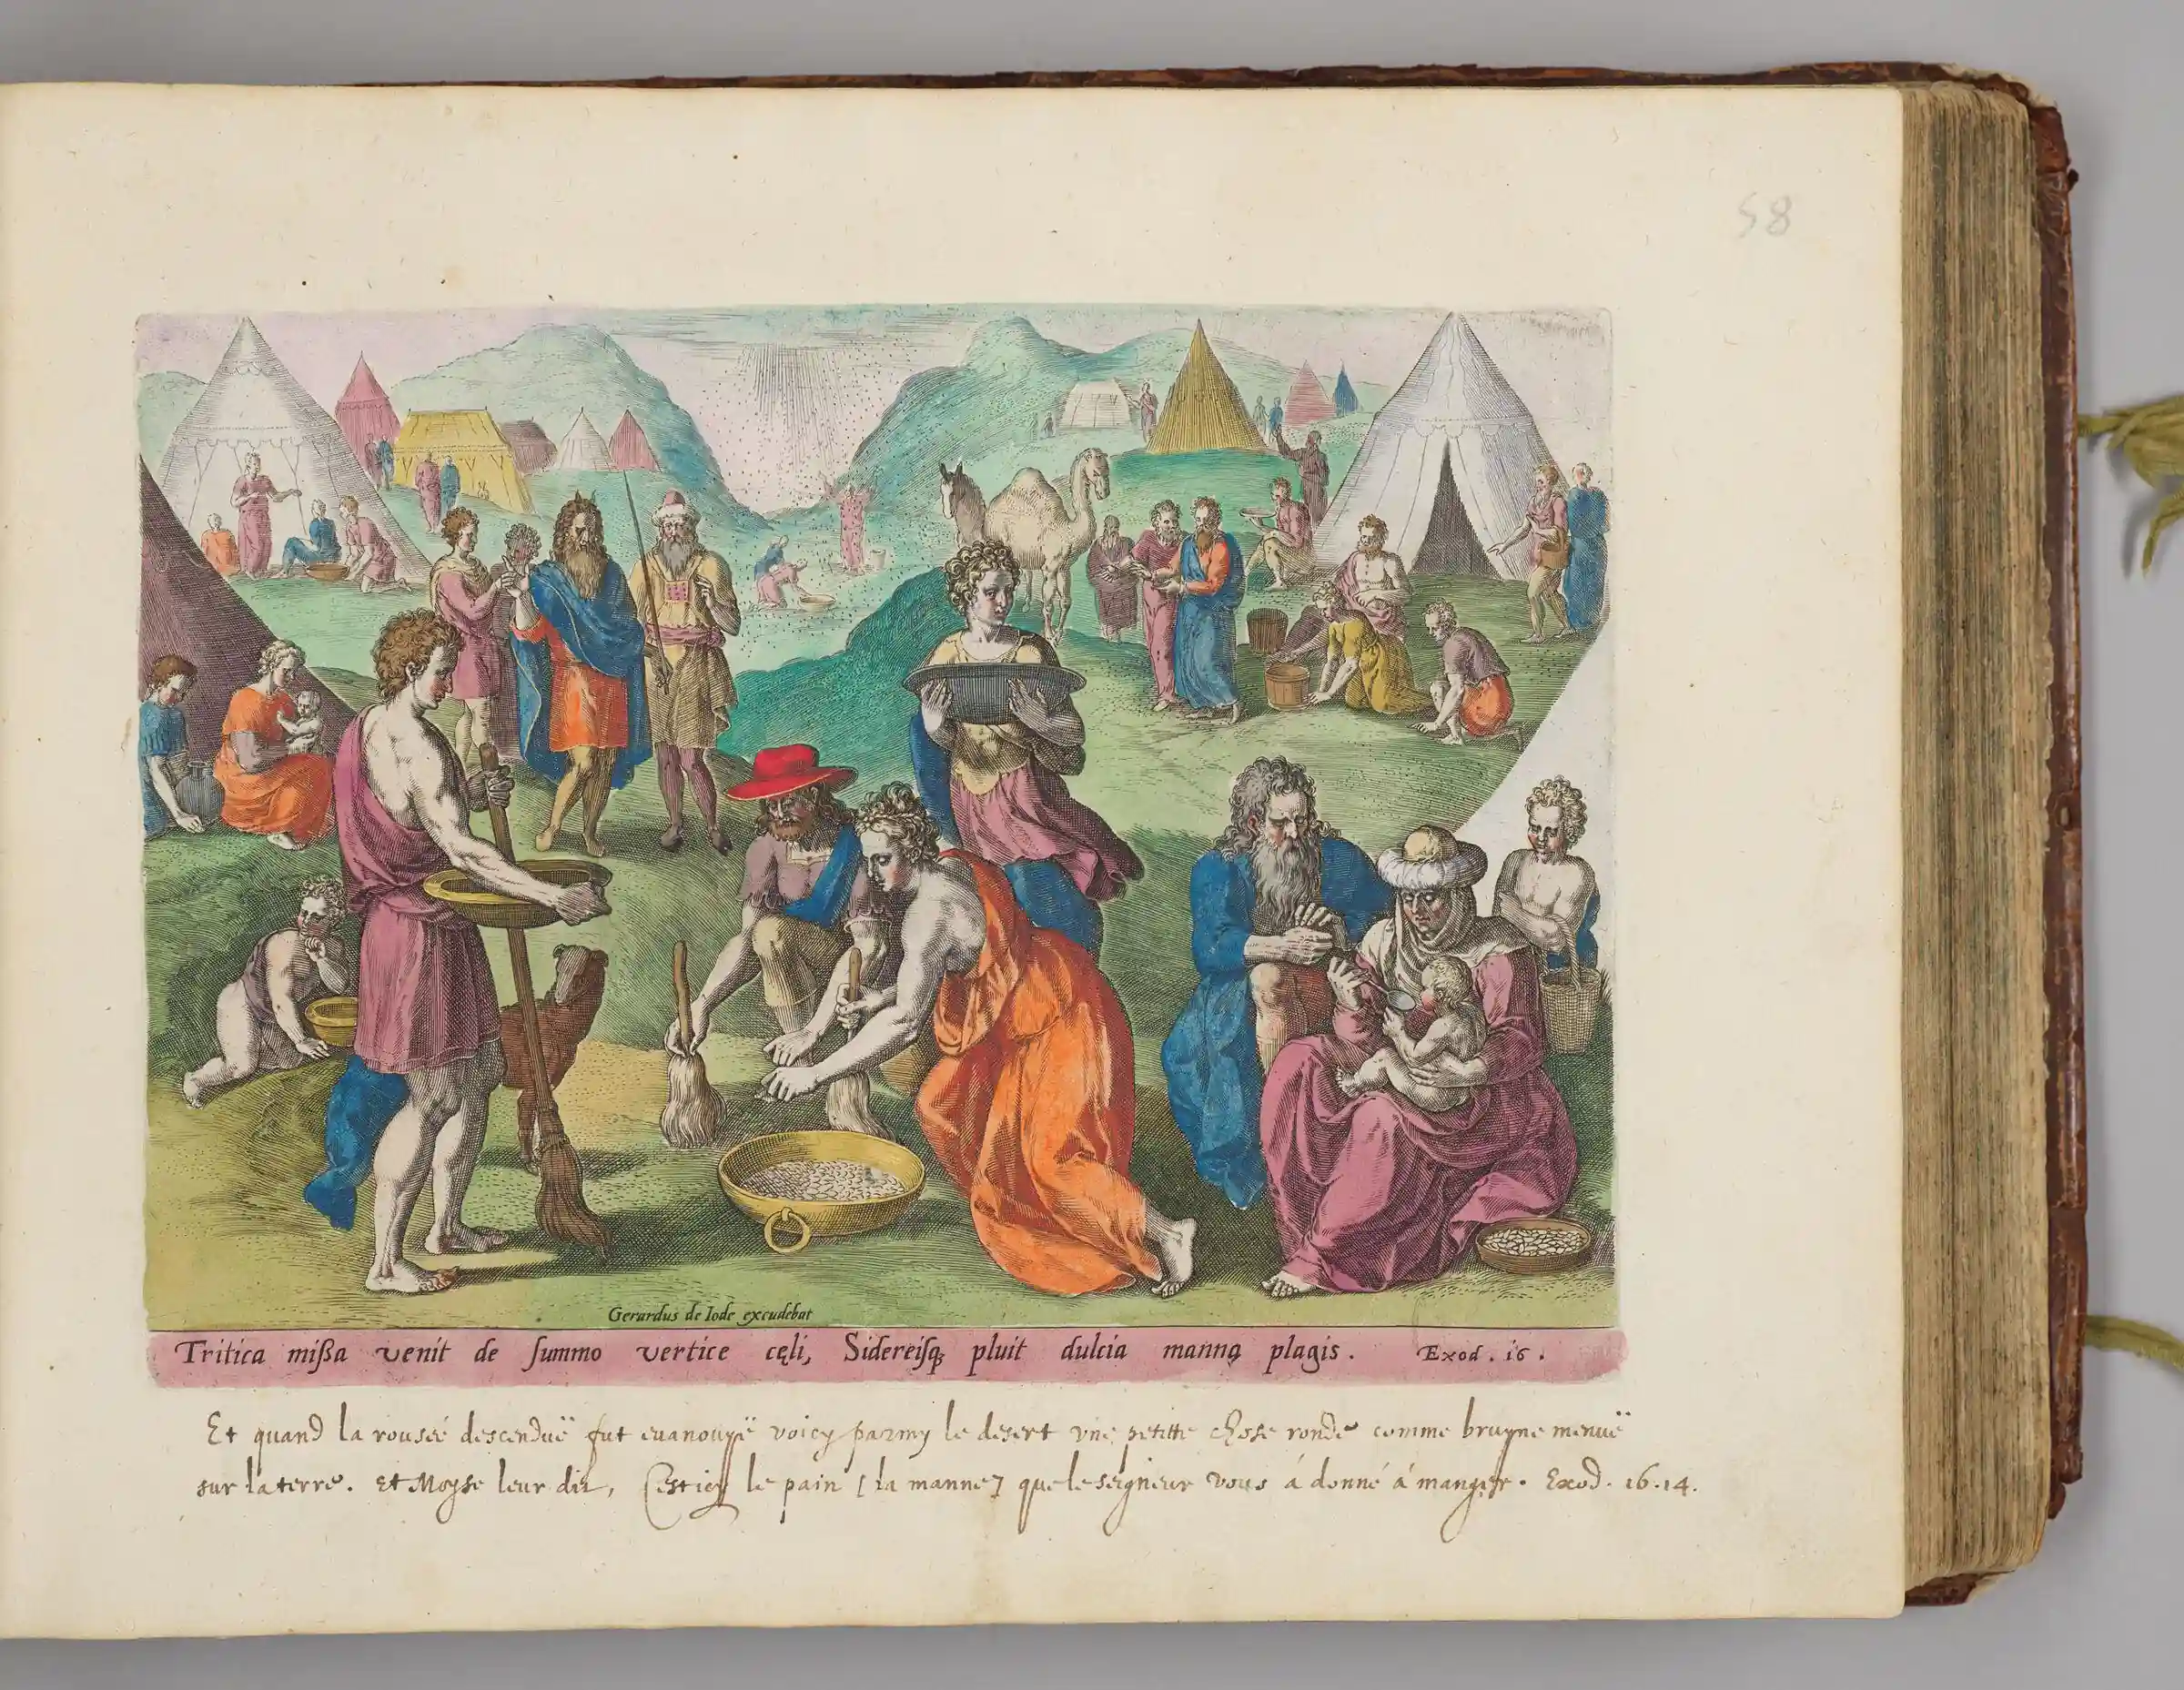 58
Gerardus de Iode excudebat
Tritica mißa venit de ſummo vertice cęli, Sidereiſq; pluit dulcia manna plagis. Exod. 16.
Et quand la rouseé descenduë fut euanouyë voicy parmy le desert vne petitte chose ronde comme bruyne menuë
sur la terre. Et Moyse leur dit, C'est icy le pain [la manne] que le seigneur vous á donné á manger. Exod. 16.14.